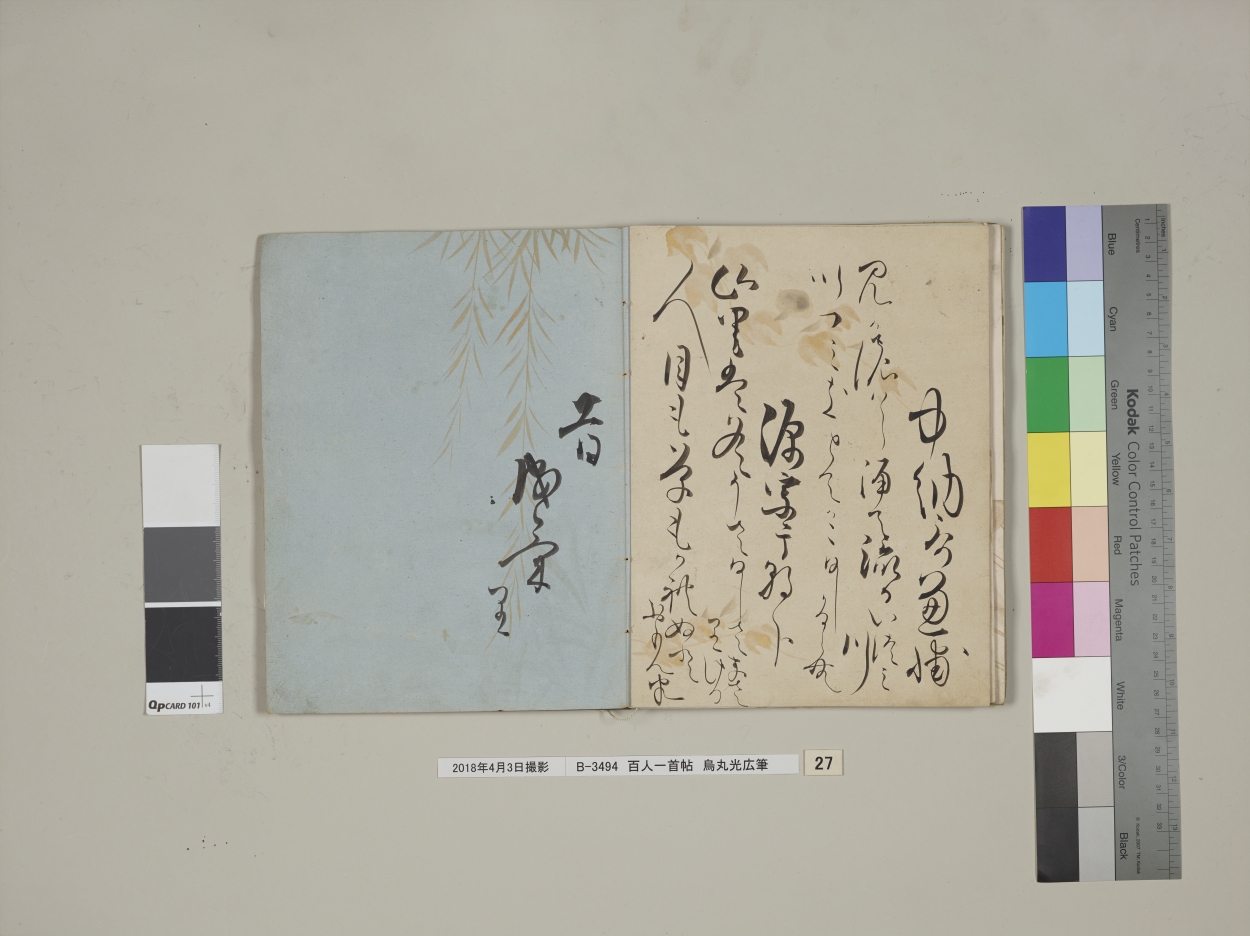 中納言兼輔
見かの原涌て流るゝいつみ
川
いつミきとてかこひしかるらむ
源宗于朝臣
山里は冬そさひしさまさ
りける
人目も草もかれぬと
おもへは
2018年4月3日撮影 B-3494 百人一首帖 烏丸光広筆 27
QpCARD 101 v4
Kodak Color Control Patches
Blue
Cyan
Green
Yellow
Red
Magenta
White
3/Color
Black
Centimetres
Inches